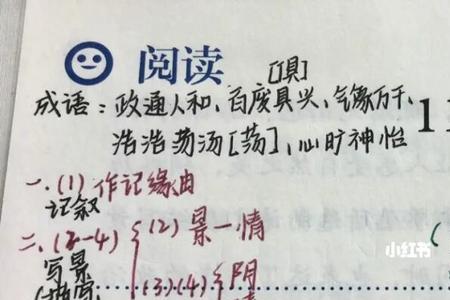 阅读 [俱]
成语：政通人和、百废具兴、气象万千、
浩浩荡汤[荡]、心旷神怡
一、(1) 作记缘由
记叙
二、(2-4) { (2) 景—情
写景
(3)(4) { 阴
情
小红书